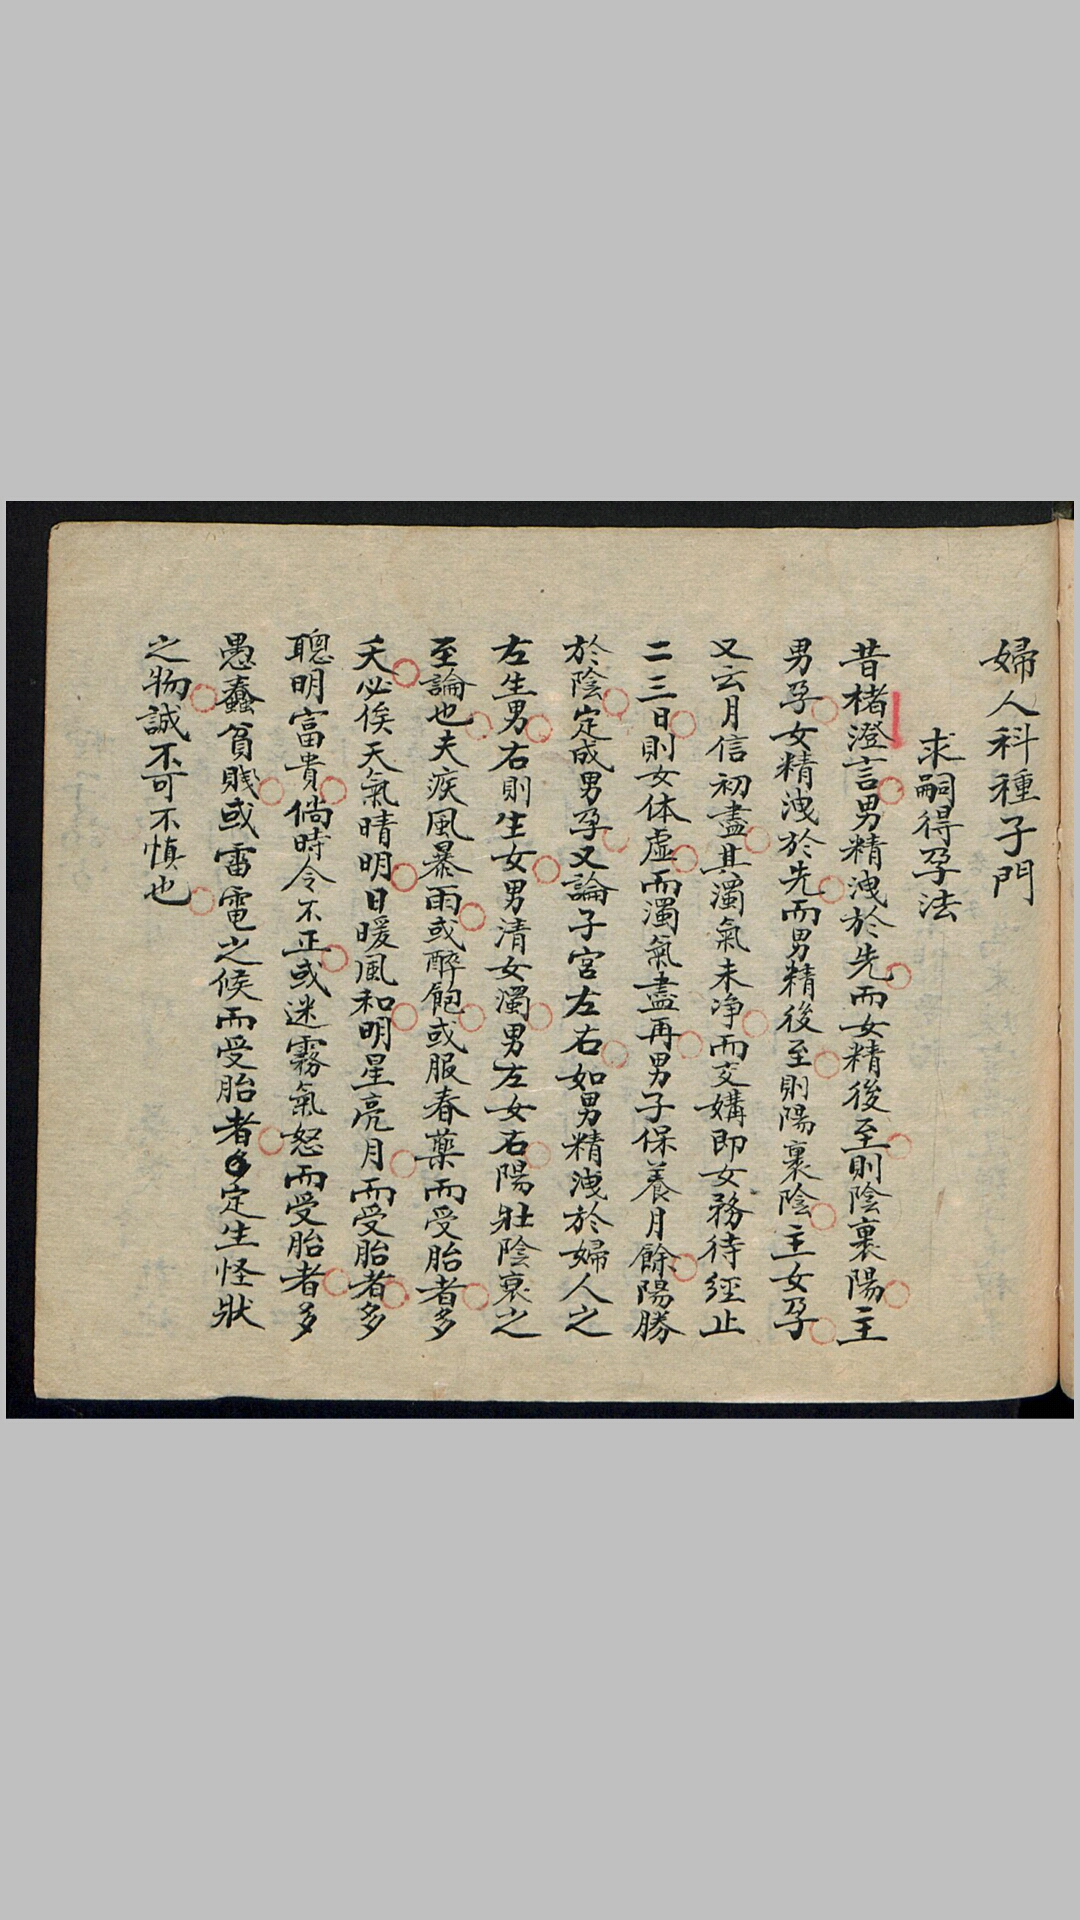 婦人科種子門
求嗣得孕法
昔楮澄言男精洩於先而女精後至則陰裏陽主
男孕女精洩於先而男精後至則陽裏陰主女孕
又云月信初盡其濁氣未净而交媾即女務待經止
二三日則女体虛而濁氣盡再男子保養月餘陽勝
於陰定成男孕又論子宮左右如男精洩於婦人之
左生男右則生女男清女濁男左女右陽壯陰衰之
至論也夫疾風暴雨或醉飽或服春藥而受胎者多
夭必俟天氣晴明日暖風和明星亮月而受胎者多
聰明富貴倘時令不正或迷霧氣怒而受胎者多
愚蠢貧賤或雷電之候而受胎者定生怪狀
之物誠不可不慎也